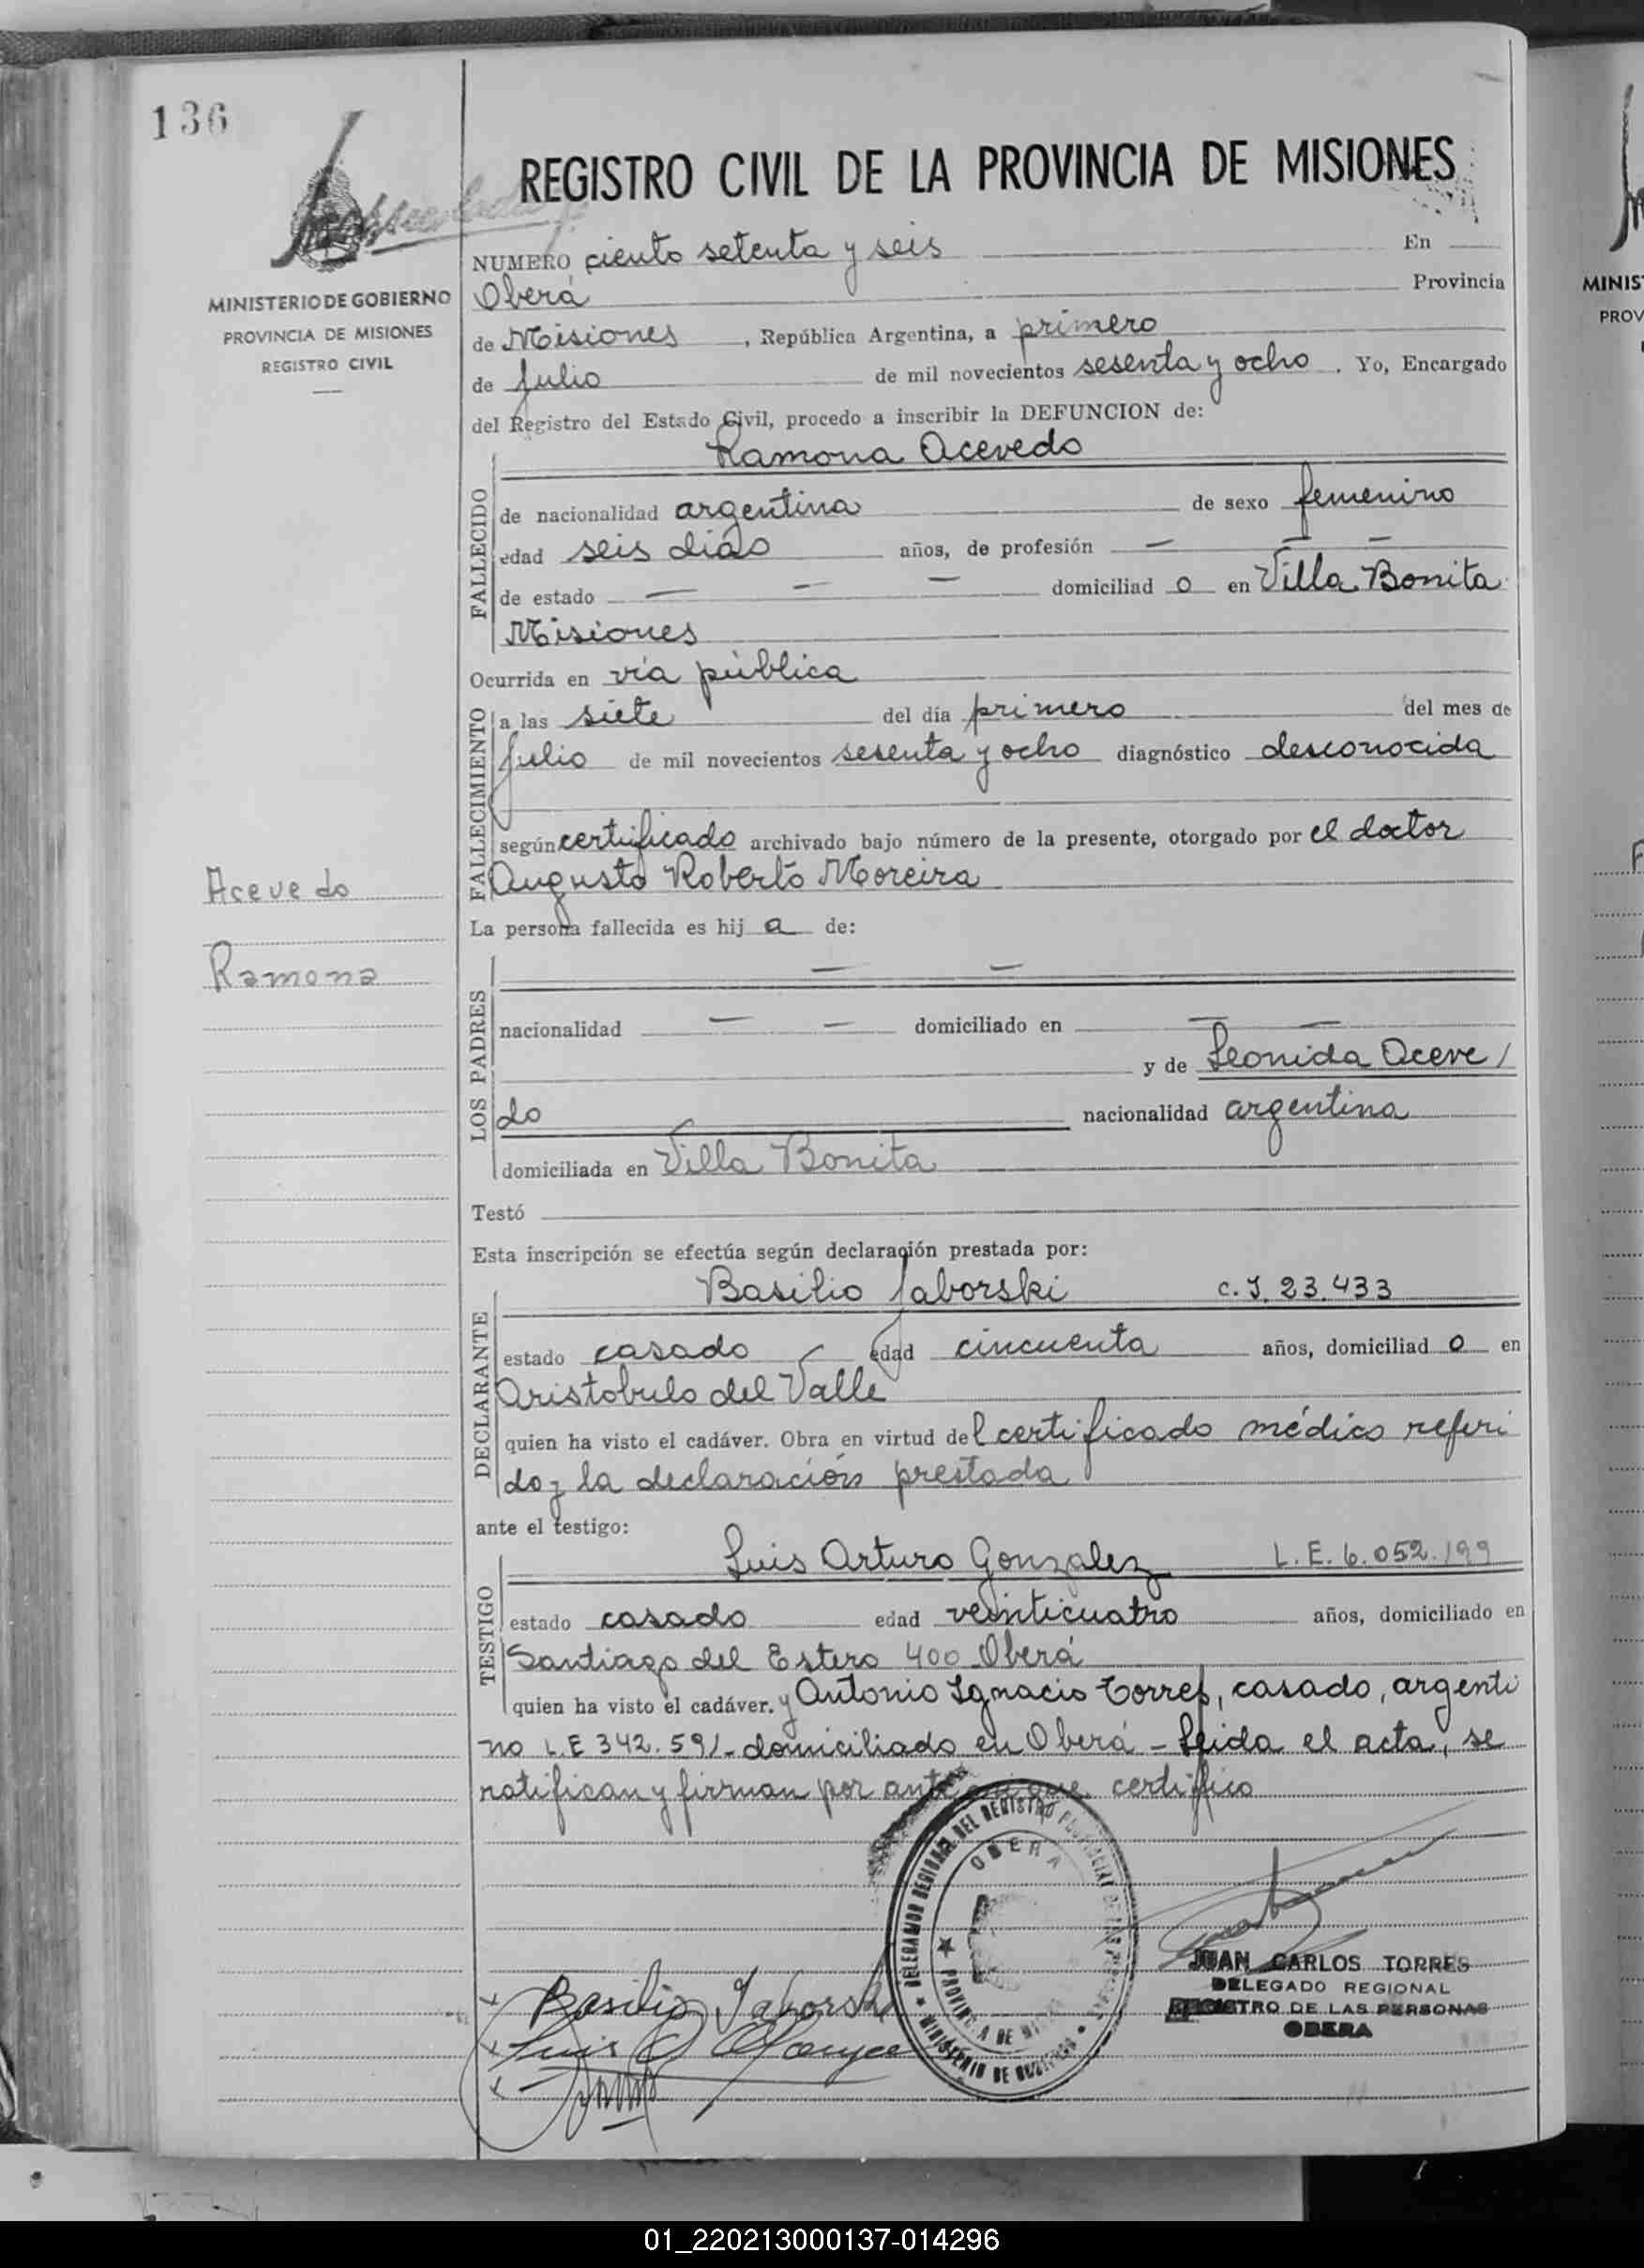 136
REGISTRO CIVIL DE LA PROVINCIA DE MISIONES
MINISTERIO DE GOBIERNO
PROVINCIA DE MISIONES
REGISTRO CIVIL
NUMERO ciento setenta y seis En
Oberá Provincia
de Misiones, República Argentina, a primero
de Julio de mil novecientos sesenta y ocho. Yo, Encargado
del Registro del Estado Civil, procedo a inscribir la DEFUNCION de:
Ramona Acevedo
FALLECIDO
de nacionalidad argentina de sexo femenino
edad seis días años, de profesión — — —
de estado — — — domiciliad o en Villa Bonita
Misiones
Ocurrida en vía pública
FALLECIMIENTO
a las siete del día primero del mes de
Julio de mil novecientos sesenta y ocho diagnóstico desconocida
según certificado archivado bajo número de la presente, otorgado por el doctor
Augusto Roberto Moreira
Acevedo
Ramona
La persona fallecida es hij a de:
LOS PADRES
— —
nacionalidad — — domiciliado en — —
y de Leonida Aceve/
do nacionalidad argentina
domiciliada en Villa Bonita
Testó
Esta inscripción se efectúa según declaración prestada por:
Basilio Jaborski c.I. 23.433
DECLARANTE
estado casado edad cincuenta años, domiciliad o en
Aristobulo del Valle
quien ha visto el cadáver. Obra en virtud del certificado médico referi
do y la declaración prestada
ante el testigo:
Luis Arturo Gonzalez L.E. 6.052.199
TESTIGO
estado casado edad veinticuatro años, domiciliado en
Santiago del Estero 400 Oberá
quien ha visto el cadáver. y Antonio Ignacio Torres, casado, argenti
no L.E 342.591- domiciliado en Oberá - Leida el acta, se
ratifican y firman por ante mi que certifico
DELEGACION REGIONAL DEL REGISTRO PROVINCIAL DE LAS PERSONAS
OBERA
PROVINCIA DE MISIONES
MINISTERIO DE GOBIERNO
JUAN CARLOS TORRES
DELEGADO REGIONAL
REGISTRO DE LAS PERSONAS
OBERA
Basilio Jaborski
Luis A Gonzalez
MINIS
PROV
01_220213000137-014296